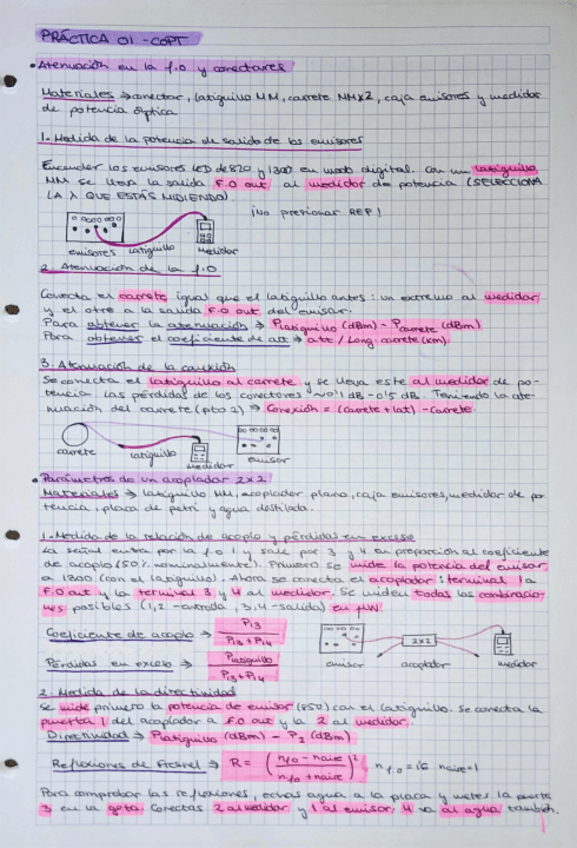 PRÁCTICA 01 - COPT
• Atenuación en la f.o y conectores
Materiales → conector, latiguillo MM, carrete MMX2, caja emisores y medidor
de potencia óptica
1. Medida de la potencia de salida de los emisores
Encender los emisores LED de 820 y 1300 en modo digital. Con un latiguillo
MM se lleva la salida F.O out al medidor de potencia (SELECCIONA
LA λ QUE ESTÁS MIDIENDO).
¡No presionar REF!
emisores latiguillo medidor
2. Atenuación de la f.o
Conecta el carrete igual que el latiguillo antes: un extremo al medidor
y el otro a la salida F.O out del emisor.
Para obtener la atenuación → Platiguillo (dBm) - Pcarrete (dBm)
Para obtener el coeficiente de att → att / Long. carrete (km)
3. Atenuación de la conexión
Se conecta el latiguillo al carrete y se lleva este al medidor de po-
tencia. Las pérdidas de los conectores ~0'1 dB - 0'5 dB. Teniendo la ate-
nuación del carrete (pto 2) → Conexión = (carrete + lat) - Carrete.
carrete latiguillo medidor emisor
• Parámetros de un acoplador 2x2
Materiales → latiguillo MM, acoplador plano, caja emisores, medidor de po
tencia, placa de petri y agua destilada.
1. Medida de la relación de acoplo y pérdidas en exceso
La señal entra por la f.o 1 y sale por 3 y 4 en proporción al coeficiente
de acoplo (50% nominalmente). Primero se mide la potencia del emisor
a 1300 (con el latiguillo). Ahora se conecta el acoplador: terminal 1 a
F.O out y la terminal 3 y 4 al medidor. Se miden todas las combinacio-
nes posibles (1,2 - entrada, 3,4 - salida) en μW.
Coeficiente de acoplo → P13 / P13 + P14
Pérdidas en exceso → Platiguillo / P13 + P14
2x2
emisor acoplador medidor
2. Medida de la directividad
Se mide primero la potencia de emisor (850) con el latiguillo. Se conecta la
puerta 1 del acoplador a F.O out y la 2 al medidor.
Directividad → Platiguillo (dBm) - P2 (dBm)
Reflexiones de Fresnel → R = (nfo - naire / nfo + naire)² nf.o = 1'5 naire = 1
Para comprobar las reflexiones, echas agua a la placa y metes la puerta
3 en la gota. Conectas 2 al medidor y 1 al emisor. 4 va al agua también.